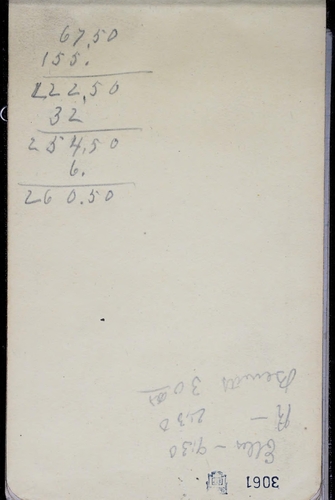 67.50
155.
222.50
32
254.50
6.
260.50
3061
Ellen - 9:30
R - 2:30
30 00